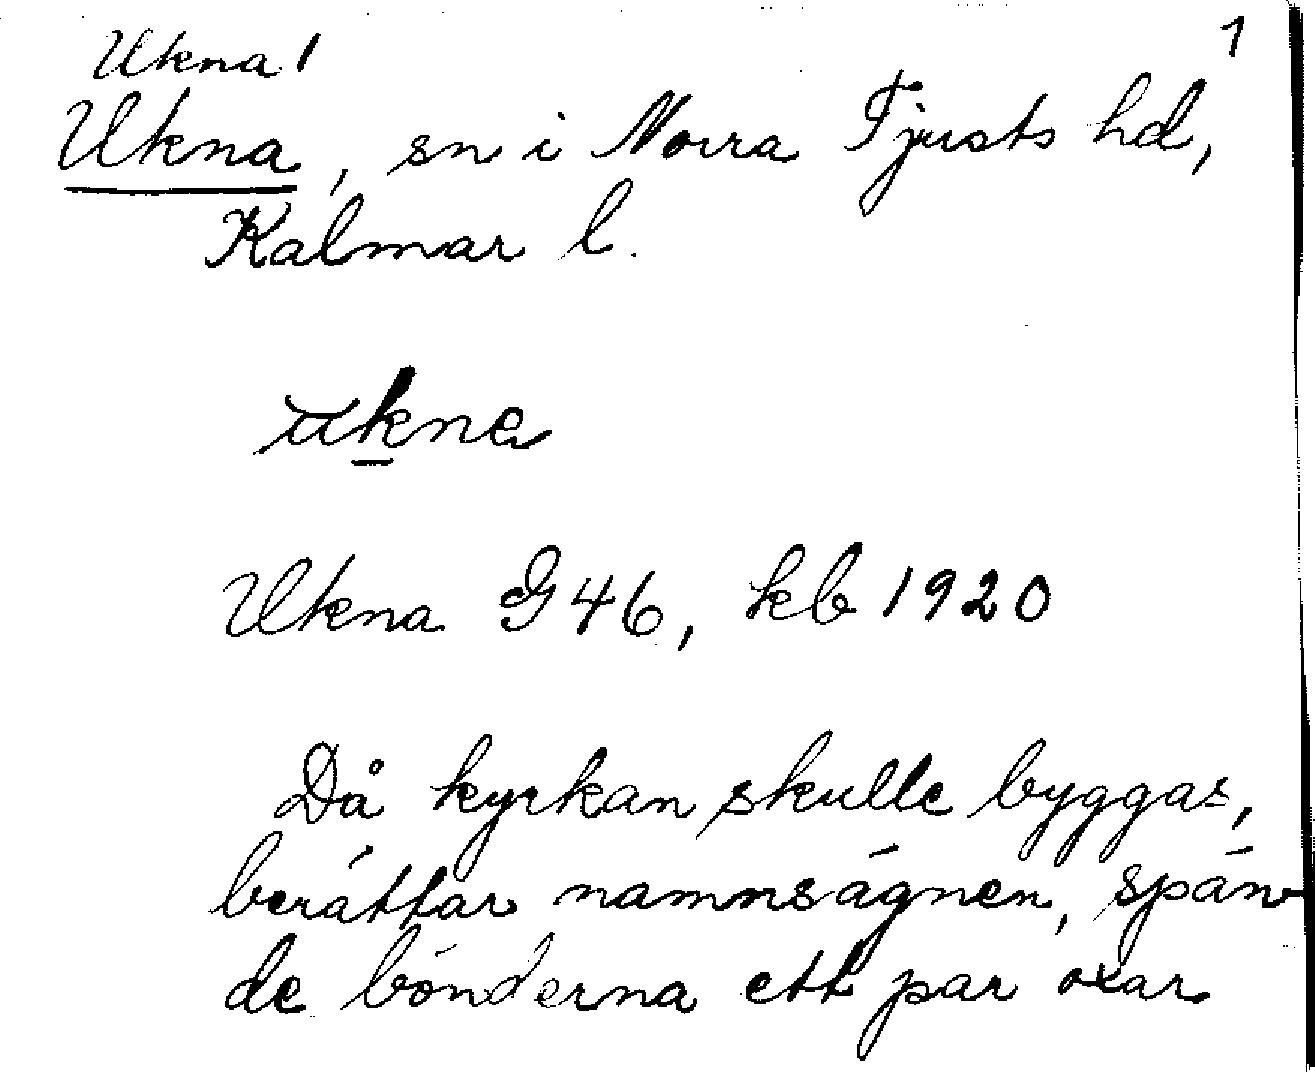 Ukna 1 1
Ukna, sn i Norra Tjusts hd,
Kalmar l.
ukna
Ukna G46, kb 1920
Då kyrkan skulle byggas,
berättar namnsägnen, spän-
de bönderna ett par oxar